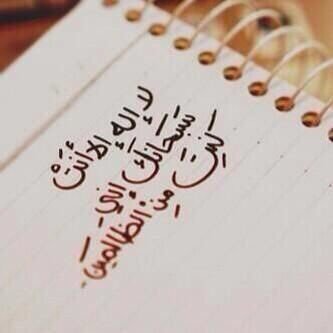 لا إله إلا أَنتْ
سبحانكَ إني
كنت مِن الظالمين